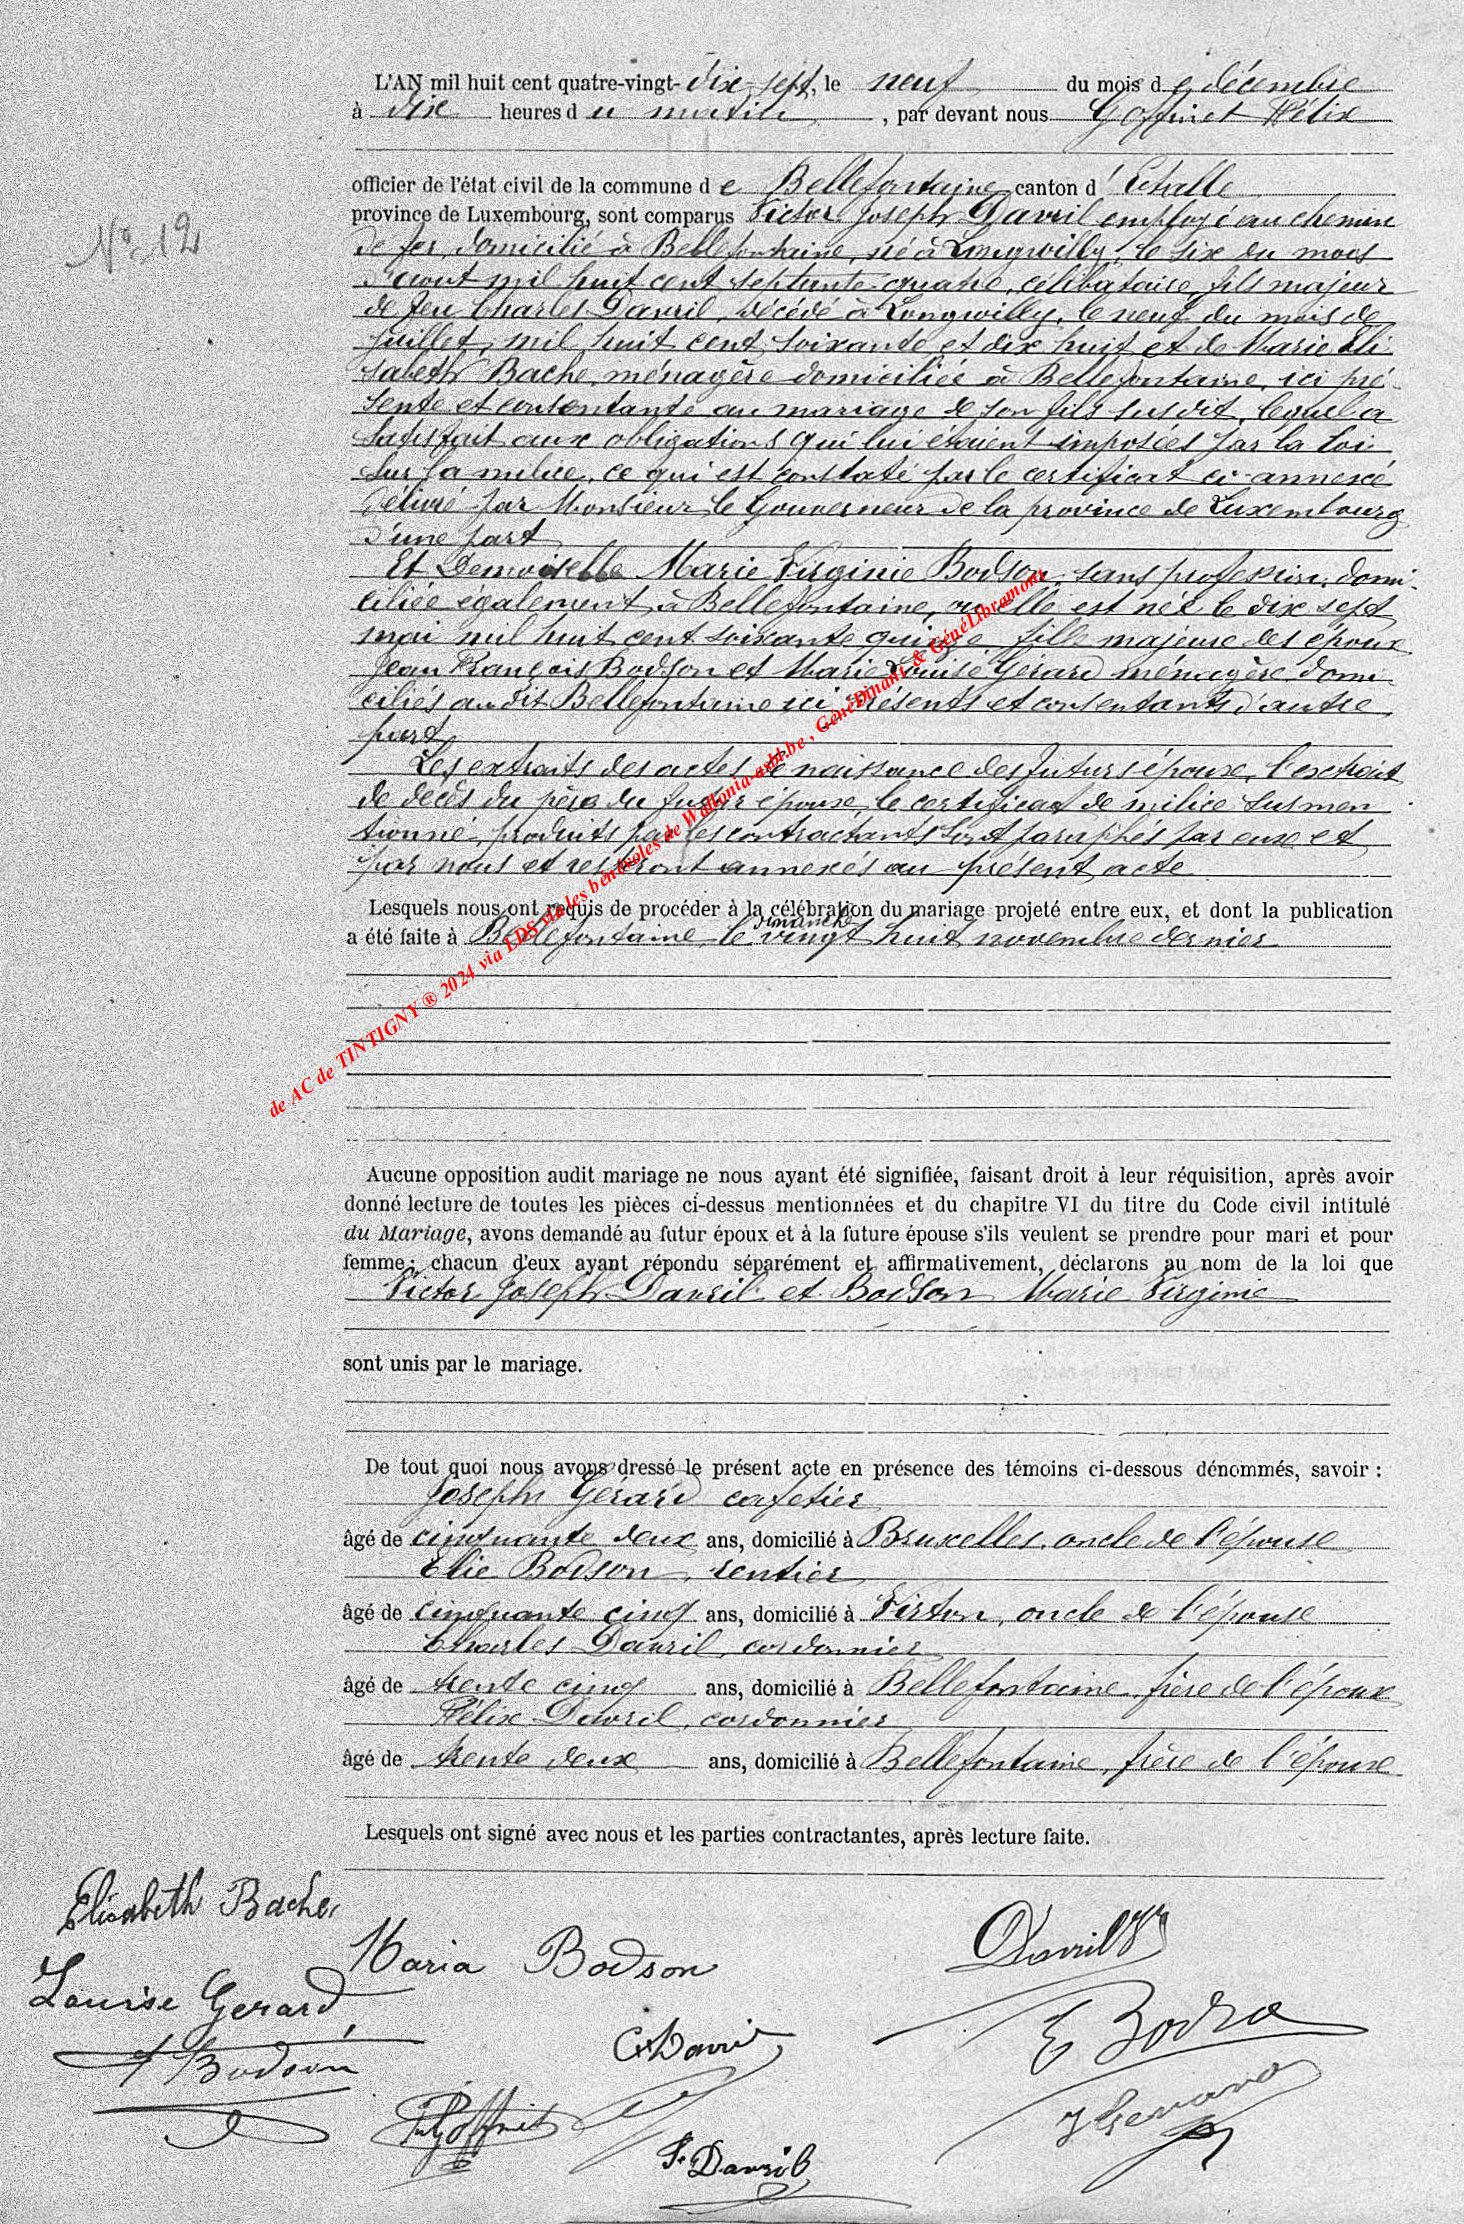 L'AN mil huit cent quatre-vingt-dix-sept, le neuf du mois de décembre
à dix heures du matin, par devant nous Goffinet Félix
officier de l'état civil de la commune de Bellefontaine canton d'Etalle
N° 12
province de Luxembourg, sont comparus Victor Joseph Davril employé au chemin
de fer, domicilié à Bellefontaine, né à Longwilly, le six du mois
d'aout mil huit cent septante-quatre, célibataire, fils majeur
de feu Charles Davril, décédé à Longwilly, le neuf du mois de
juillet, mil huit cent soixante et dix huit et de Marie Eli
sabeth Bache, ménagère domiciliée à Bellefontaine, ici pré-
sente et consentante au mariage de son fils susdit, lequel a
satisfait aux obligations qui lui étaient imposées par la loi
sur la milice, ce qui est constaté par le certificat ci-annexé
délivré par Monsieur le Gouverneur de la province de Luxembourg
d'une part
Et Demoiselle Marie Virginie Bodson, sans profession, domi-
ciliée également à Bellefontaine, où elle est née le dix sept
mai mil huit cent soixante quinze fille majeure des époux
Jean François Bodson et Marie Louise Gérard ménagère domi
ciliés au dit Bellefontaine ici présents et consentants d'autre
part
Les extraits des actes de naissance des futurs époux, l'extrait
de décès du père du futur époux, le certificat de milice susmen
tionné, produits par les contractants sont paraphés par eux et
par nous et resteront annexés au présent acte
Lesquels nous ont requis de procéder à la célébration du mariage projeté entre eux, et dont la publication
dimanche
a été faite à Bellefontaine le vingt huit novembre dernier
de AC de TINTIGNY ® 2024 via LDS via les bénévoles de Wallonia-asbl.be , GénéDinant & GénéLibramont
Aucune opposition audit mariage ne nous ayant été signifiée, faisant droit à leur réquisition, après avoir
donné lecture de toutes les pièces ci-dessus mentionnées et du chapitre VI du titre du Code civil intitulé
du Mariage, avons demandé au futur époux et à la future épouse s'ils veulent se prendre pour mari et pour
femme ; chacun d'eux ayant répondu séparément et affirmativement, déclarons au nom de la loi que
Victor Joseph Davril et Bodson Marie Virginie
sont unis par le mariage.
De tout quoi nous avons dressé le présent acte en présence des témoins ci-dessous dénommés, savoir :
Joseph Gérard cafetier
âgé de cinquante deux ans, domicilié à Bruxelles, oncle de l'épouse
Elie Bodson, rentier
âgé de cinquante cinq ans, domicilié à Virton, oncle de l'épouse
Charles Davril, cordonnier
âgé de trente cinq ans, domicilié à Bellefontaine frère de l'époux
Félix Davril, cordonnier
âgé de trente deux ans, domicilié à Bellefontaine, frère de l'époux
Lesquels ont signé avec nous et les parties contractantes, après lecture faite.
Elisabeth Bache
Maria Bodson
Davril
Louise Gerard
E Bodson
C Davril
Bodson
J Gerard
Goffinet
F. Davril